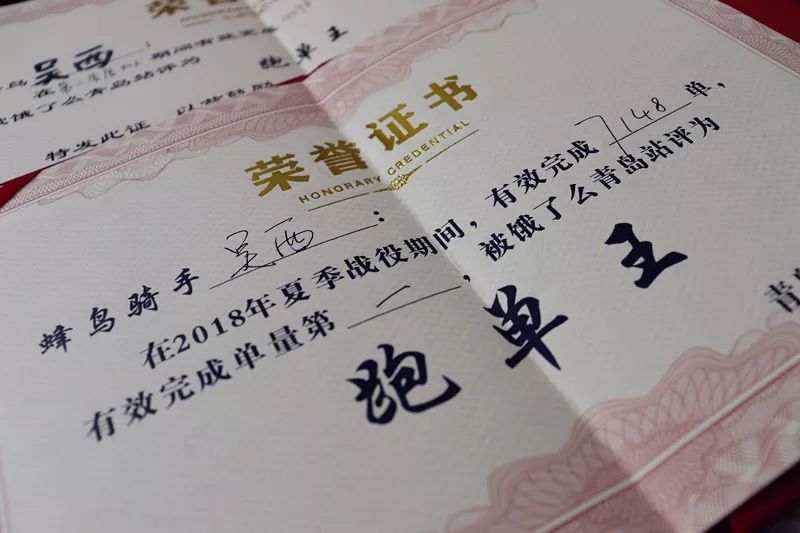 荣
鸟吴西:
期间有效完成
饿了么青岛站评为
跑单王
特发此证 以兹鼓励
荣誉证书
HONORARY CREDENTIAL
蜂鸟骑手吴西:
在2018年夏季战役期间,有效完成7148单,
有效完成单量第一,被饿了么青岛站评为
跑单王
青